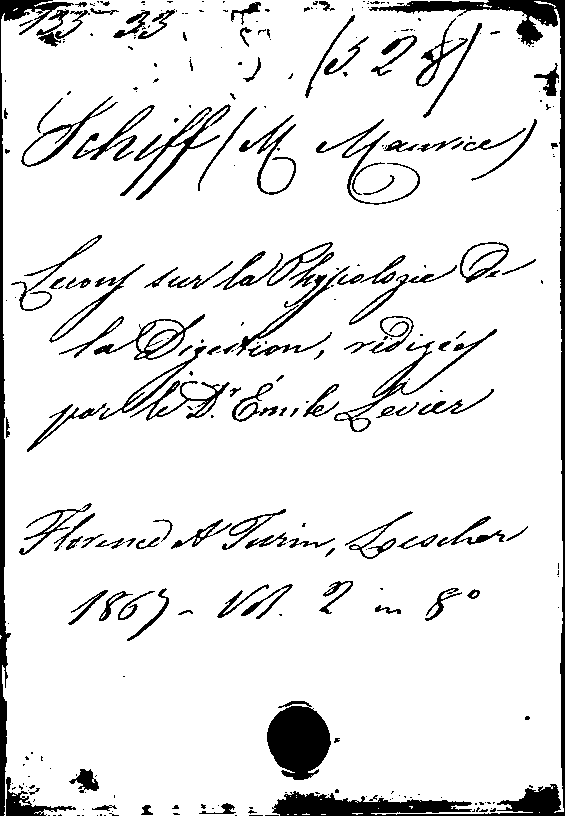 133. 33 (S. 2 8)
Schiff (M. Maurice)
Leçons sur la Physiologie de
la Digestion, rédigées
par le Dr Émile Levier
Florence et Turin, Loescher
1867 - Vol. 2 in 8°